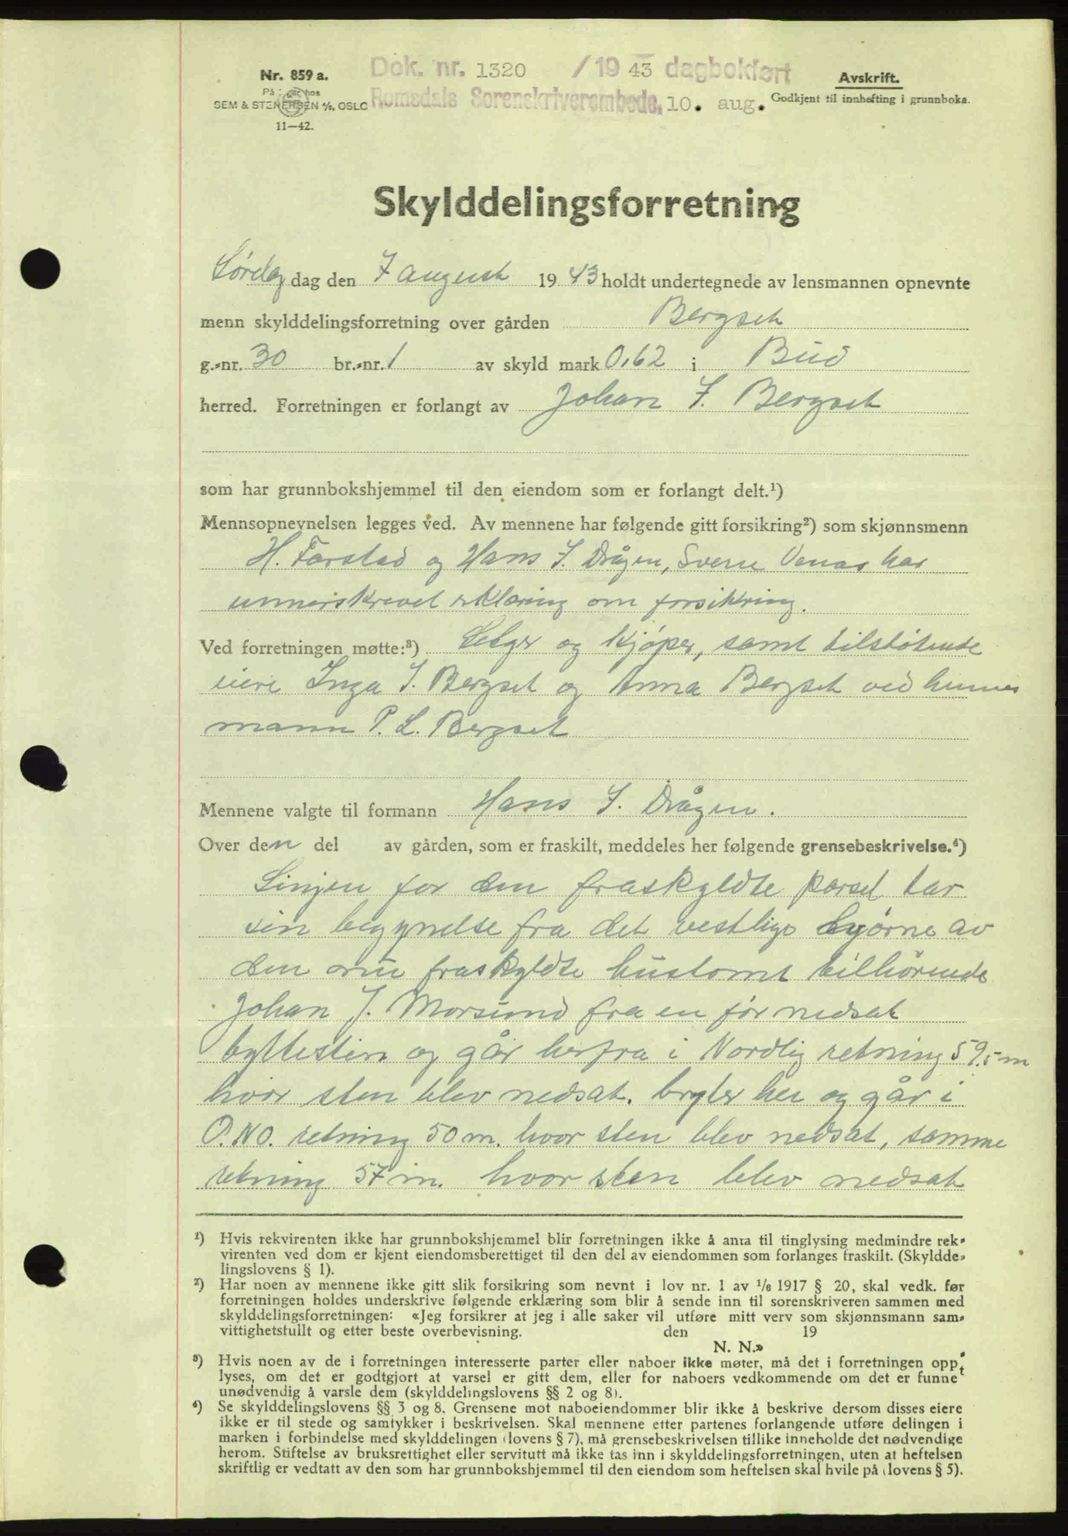 Nr. 859 a.
På lager hos
SEM & STENERSEN A/S, OSLO
11—42.
Dok. nr. 1320 /19 43 dagbokført
Romsdals Sorenskriverembede, 10. aug.
Avskrift.
Godkjent til innhefting i grunnboka.
Skylddelingsforretning
Lørdag dag den 7 august 1943 holdt undertegnede av lensmannen opnevnte
menn skylddelingsforretning over gården Bergset
g.-nr. 30 br.-nr. 1 av skyld mark 0,62 i Bud
herred. Forretningen er forlangt av Johan J. Bergset
som har grunnbokshjemmel til den eiendom som er forlangt delt.¹)
Mennsopnevnelsen legges ved. Av mennene har følgende gitt forsikring²) som skjønnsmenn
H. Farstad og Hans J. Drågen, Sverre Vanas har
unnerskrevet erklæring om forsikring.
Ved forretningen møtte:³) Selger og kjøper, samt tilstøtende
eiere Inga J. Bergset og Anna Bergset ved hennes
mann P. L. Bergset
Mennene valgte til formann Hans J. Drågen.
Over den del av gården, som er fraskilt, meddeles her følgende grensebeskrivelse.⁴)
Linjen for den fraskyldte parsel tar
sin begynelse fra det vestlige hjørne av
den nu fraskyldte hustomt tilhørende
Johan J. Morsund fra en før nedsat
byttesten og går herfra i Nordlig retning 59,5 m
hvor sten blev nedsat. bryter her og går i
O.NO. retning 50 m. hvor sten blev nedsat, samme
retning 57 m. hvor sten blev nedsat
¹) Hvis rekvirenten ikke har grunnbokshjemmel blir forretningen ikke å anta til tinglysing medmindre rek-
virenten ved dom er kjent eiendomsberettiget til den del av eiendommen som forlanges fraskilt. (Skyldde-
lingslovens § 1).
²) Har noen av mennene ikke gitt slik forsikring som nevnt i lov nr. 1 av 1/6 1917 § 20, skal vedk. før
forretningen holdes underskrive følgende erklæring som blir å sende inn til sorenskriveren sammen med
skylddelingsforretningen: «Jeg forsikrer at jeg i alle saker vil utføre mitt verv som skjønnsmann sam-
vittighetsfullt og etter beste overbevisning. den 19
N. N.»
³) Hvis noen av de i forretningen interesserte parter eller naboer ikke møter, må det i forretningen opp-
lyses, om det er godtgjort at varsel er gitt dem, eller for naboers vedkommende om det er funnet
unødvendig å varsle dem (skylddelingslovens §§ 2 og 8).
⁴) Se skylddelingslovens §§ 3 og 8. Grensene mot naboeiendommer blir ikke å beskrive dersom disses eiere
ikke er til stede og samtykker i beskrivelsen. Skal mennene etter partenes forlangende utføre delingen i
marken i forbindelse med skylddelingen (lovens § 7), må grensebeskrivelsen tillike inneholde det nødvendige
herom. Stiftelse av bruksrettighet eller servitutt må ikke tas inn i skylddelingsforretningen, uten at heftelsen
skriftlig er vedtatt av den som har grunnbokshjemmel til den eiendom som heftelsen skal hvile på (lovens § 5).